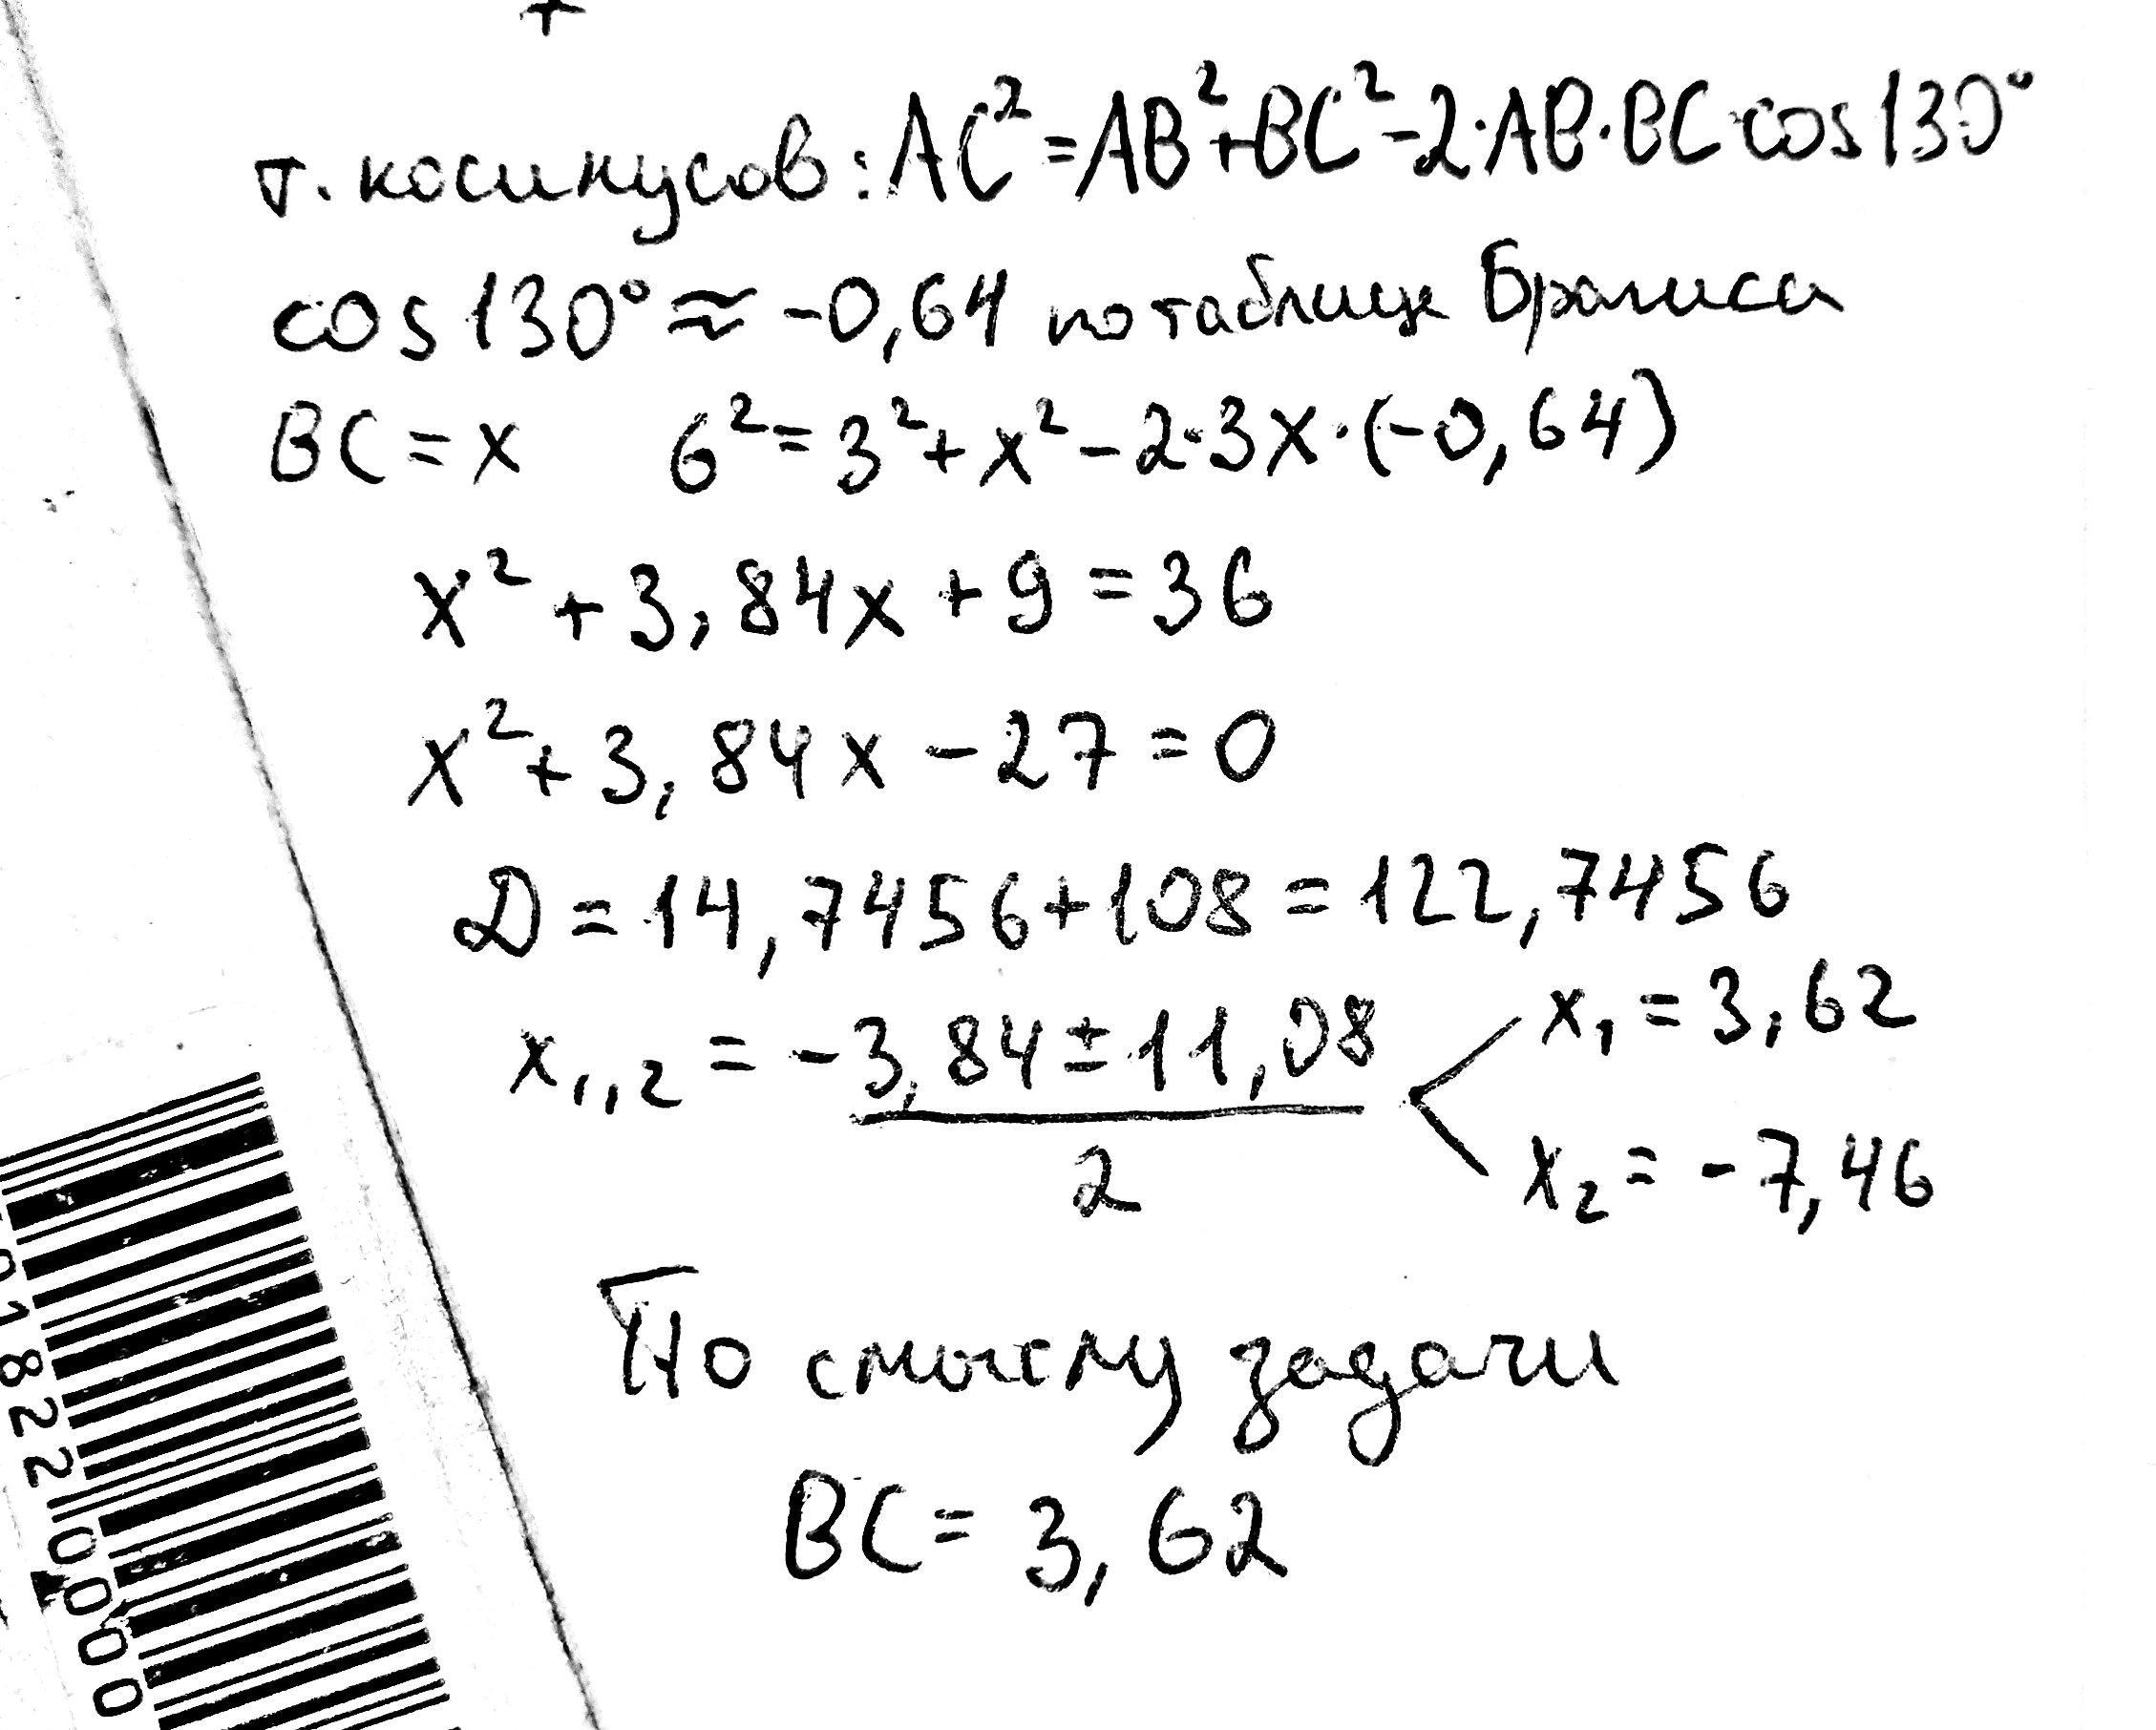 т. косинусов: AC²=AB²+BC²-2·AB·BC·cos130°
cos130°≈-0,64 по таблице Брадиса
BC=x 6²=3²+x²-2·3x·(-0,64)
x²+3,84x+9=36
x²+3,84x-27=0
D=14,7456+108=122,7456
x₁,₂=-3,84±11,08
2
x₁=3,62
x₂=-7,46
По смыслу задачи
BC=3,62